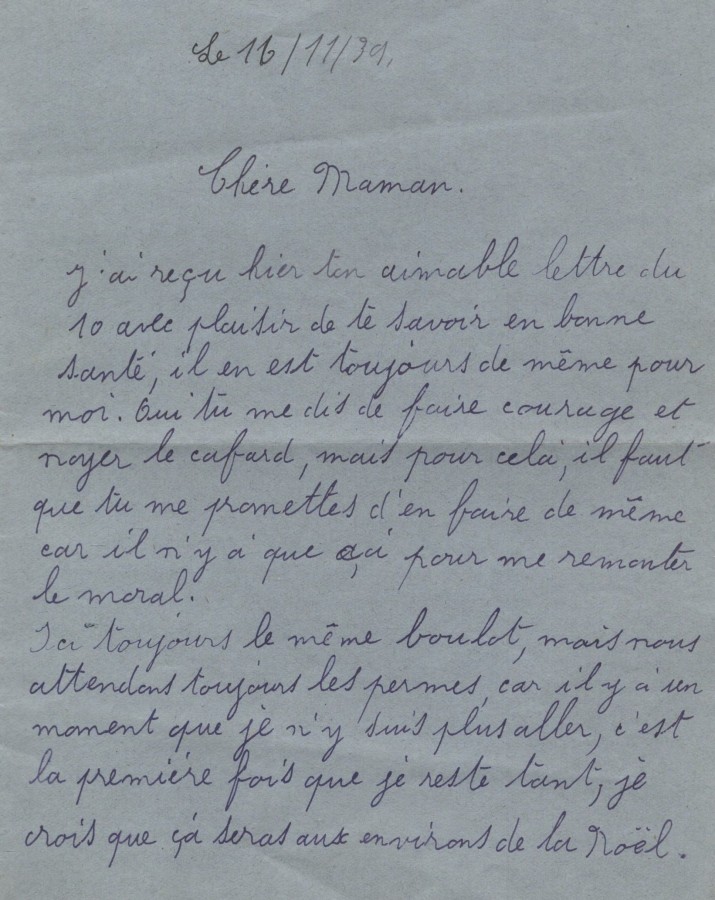 Le 16/11/39.
Chère Maman.
J'ai reçu hier ton aimable lettre du
10 avec plaisir de te savoir en bonne
santé, il en est toujours de même pour
moi. Oui tu me dis de faire courage et
noyer le cafard, mais pour celà, il faut
que tu me promettes d'en faire de même
car il n'y à que çà pour me remonter
le moral.
Ici toujours le même boulot, mais nous
attendons toujours les permes, car il y à un
moment que je n'y suis plus aller, c'est
la première fois que je reste tant, je
crois que çà seras aux environs de la Noël.